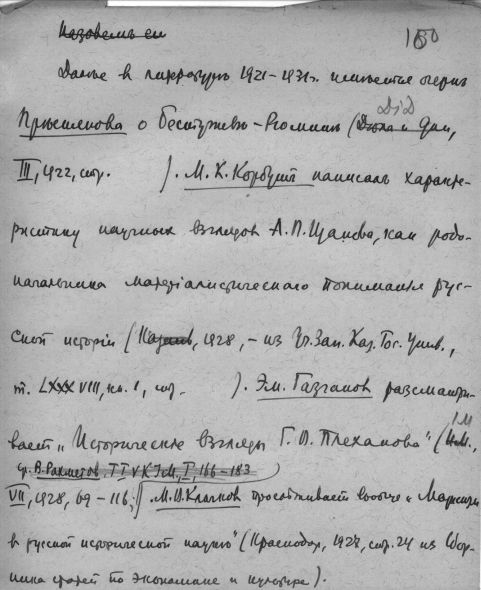 Назовемъ ея
160
Далѣе въ литературѣ 1921–1931г. имѣется очеркъ
ДiД
Прѣснякова о Бестужевъ-Рюминѣ (Дѣла и Дни,
III, 1922, стр. ). М. К. Корбутъ написалъ характе-
ристику научныхъ взглядовъ А. П. Щапова, как родо-
начальника матерiалистическаго пониманiя рус-
ской исторiи (Казань, 1928, – из Уч. Зап. Каз. Гос. Унив.,
т. LXXXVIII, кн. 1, стр. ). Эм. Газгановъ разсматри-
ваетъ „Историческiе взгляды Г. В. Плеханова“ (И.М.,
IM
ср. В. Рахметов. ПЗМ, I, 166–183
VII, 1928, 69–116; М. В. Клочков прослѣживаетъ вообще „Марксизм
в русской исторической наукѣ“ (Краснодар, 1927, стр. 24 из Сбор-
ника статей по экономике и культуре).